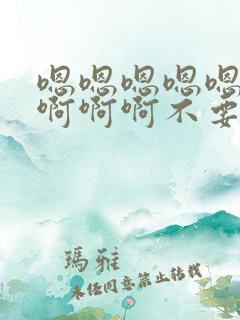 嗯嗯嗯嗯嗯
啊啊啊不要
瑪雅
未经同意禁止转载